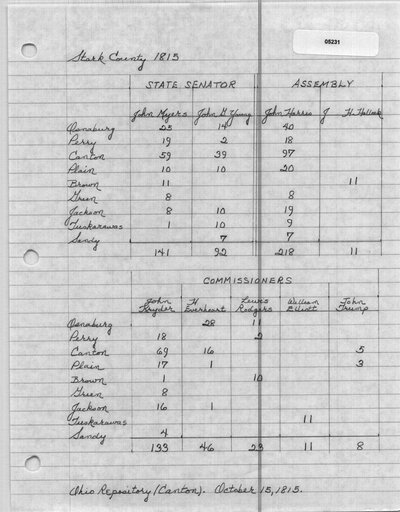 05231
Stark County 1815
STATE SENATOR ASSEMBLY
John Myers John G Young John Harris J H. Hallock
Osnaburg 25 14 40
Perry 19 2 18
Canton 59 39 97
Plain 10 10 20
Brown 11 11
Green 8 8
Jackson 8 10 19
Tuskarawas 1 10 9
Sandy 7 7
141 92 218 11
COMMISSIONERS
John Kryder H Everheart Lewis Rodgers William Elliott John Trump
Osnaburg 28 11
Perry 18 2
Canton 69 16 5
Plain 17 1 3
Brown 1 10
Green 8
Jackson 16 1
Tuskarawas 11
Sandy 4
133 46 23 11 8
Ohio Repository (Canton). October 15, 1815.